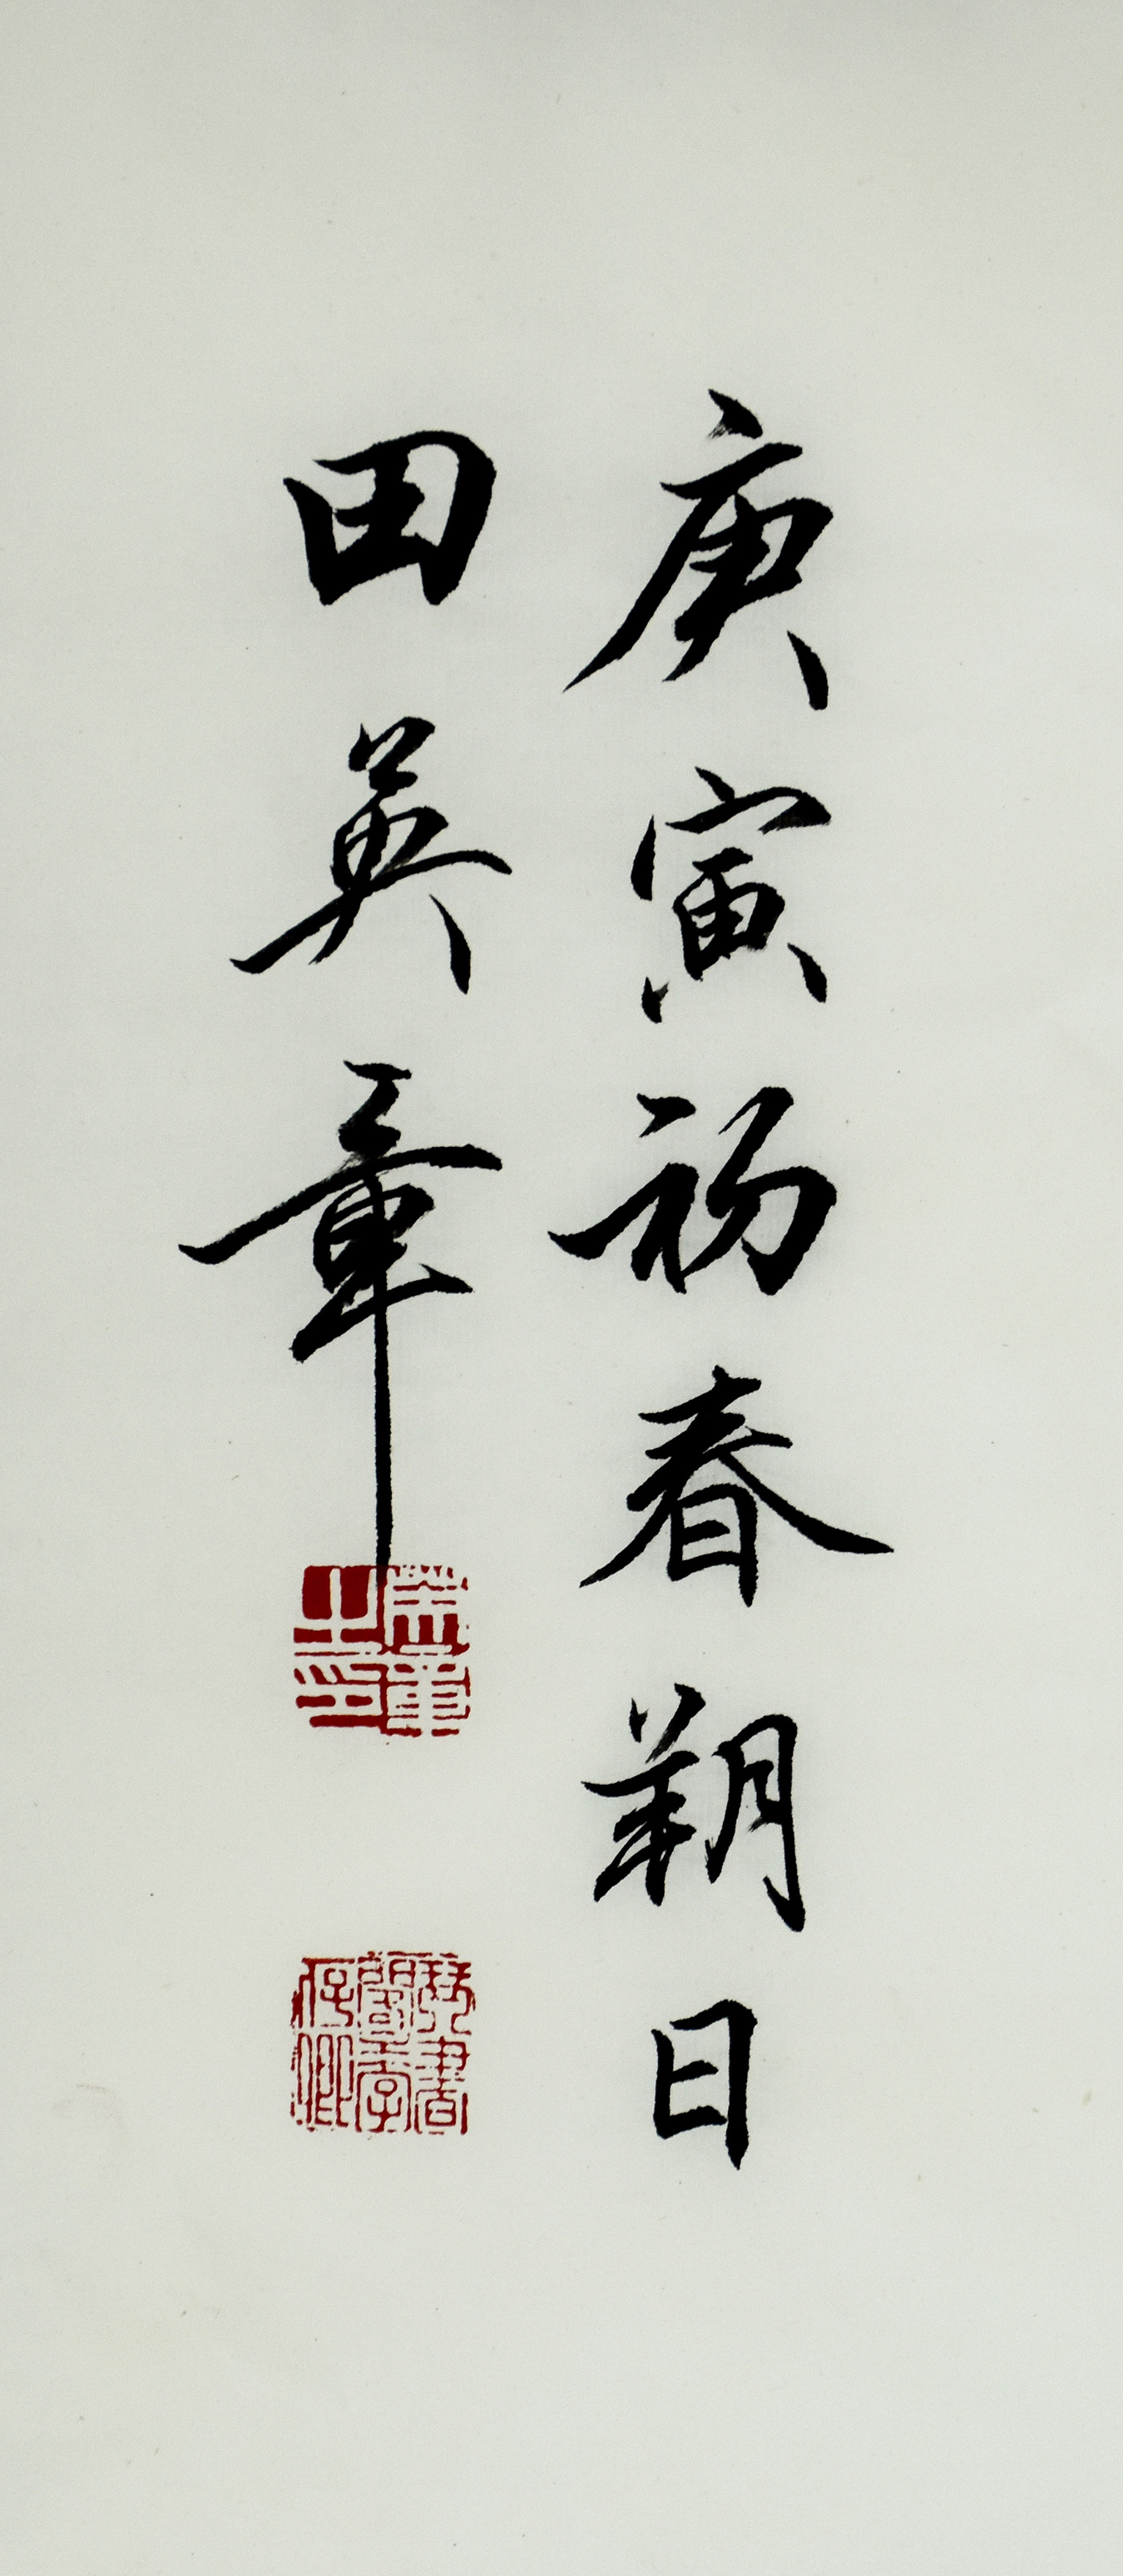 庚寅初春朔日
田英章